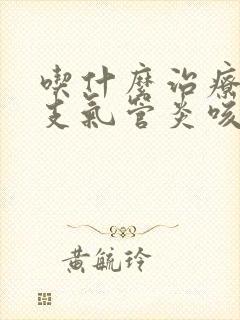 喫什麼治療
支氣管炎咳
黃毓玲